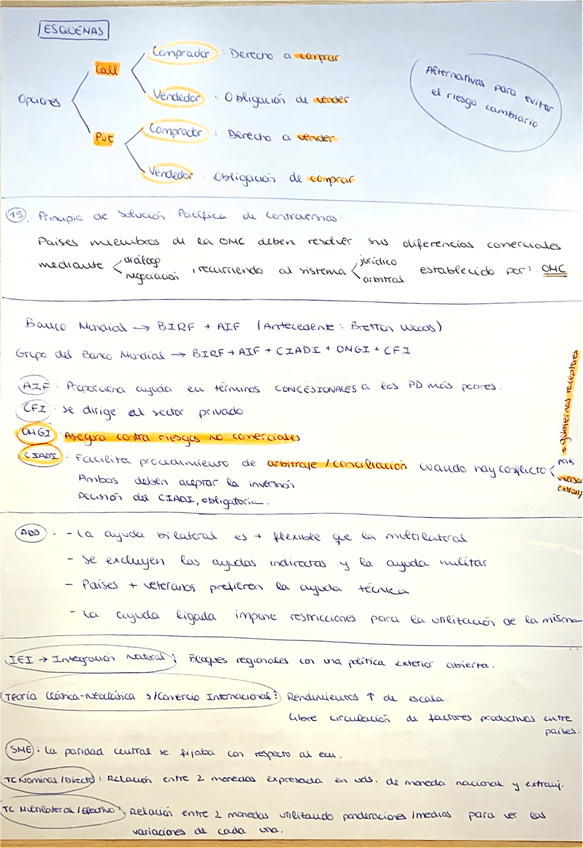 ESQUEMAS
Opciones
Call
Comprador : Derecho a comprar
Vendedor : Obligación de vender
Put
Comprador : Derecho a vender
Vendedor : Obligación de comprar
Alternativas para evitar
el riesgo cambiario
15. Principio de Solución Pacífica de Controversias:
Países miembros de la OMC deben resolver sus diferencias comerciales
mediante diálogo negociación , recurriendo al sistema jurídico arbitral establecido por: OMC
Banco Mundial → BIRF + AIF (Antecedente: Bretton Woods)
Grupo del Banco Mundial → BIRF + AIF + CIADI + OMGI + CFI
AIF : Proporciona ayuda en términos CONCESIONALES a los PD más pobres.
CFI : Se dirige al sector privado
OMGI : Asegura contra riesgos no comerciales
CIADI : Facilita procedimiento de arbitraje / conciliación cuando hay conflicto
Ambos deben aceptar la inversión
Decisión del CIADI, obligatoria.
gobiernos receptores
AOD : - La ayuda bilateral es + flexible que la multilateral
- Se excluyen las ayudas indirectas y la ayuda militar
- Países + veteranos prefieren la ayuda técnica
- La ayuda ligada impone restricciones para la utilización de la misma
IEI → Integración Natural : Bloques regionales con una política exterior abierta.
Teoría Clásica-Neoclásica s/Comercio Internacional : Rendimientos ↑ de escala
Libre circulación de factores productivos entre
países.
SME : La paridad central se fijaba con respecto al ecu.
TC Nominal / Directo : Relación entre 2 monedas expresada en uds. de moneda nacional y extranj.
TC Multilateral / Efectivo : Relación entre 2 monedas utilizando ponderaciones / medias para ver las
variaciones de cada una.